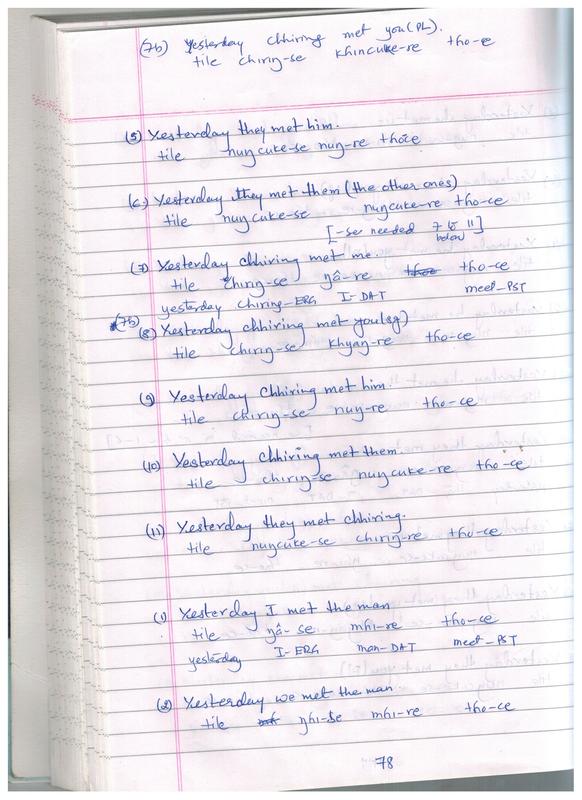 (7b) Yesterday chhiring met you(PL).
tile chiriŋ-se khincuke-re tho-ce
(5) Yesterday they met him.
tile nuŋcuke-se nuŋ-re thoce
(6) Yesterday they met them (the other ones)
tile nuŋcuke-se nuŋcuke-re tho-ce
[-se needed 7 to 11]
below
(7) Yesterday chhiring met me.
tile chiriŋ-se ŋâ-re tho-ce
yesterday chiring-ERG I-DAT meet-PST
(7b)
(8) Yesterday chhiring met you(sg)
tile chiriŋ-se khyaŋ-re tho-ce
(9) Yesterday Chhiring met him.
tile chiriŋ-se nuŋ-re tho-ce
(10) Yesterday chhiring met them.
tile chiriŋ-se nuŋcuke-re tho-ce
(11) Yesterday they met chhiring.
tile nuŋcuke-se chiriŋ-re tho-ce
(1) Yesterday I met the man
tile ŋâ-se mhi-re tho-ce
yesterday I-ERG man-DAT meet-PST
(2) Yesterday we met the man
tile ŋhi-se mhi-re tho-ce
78